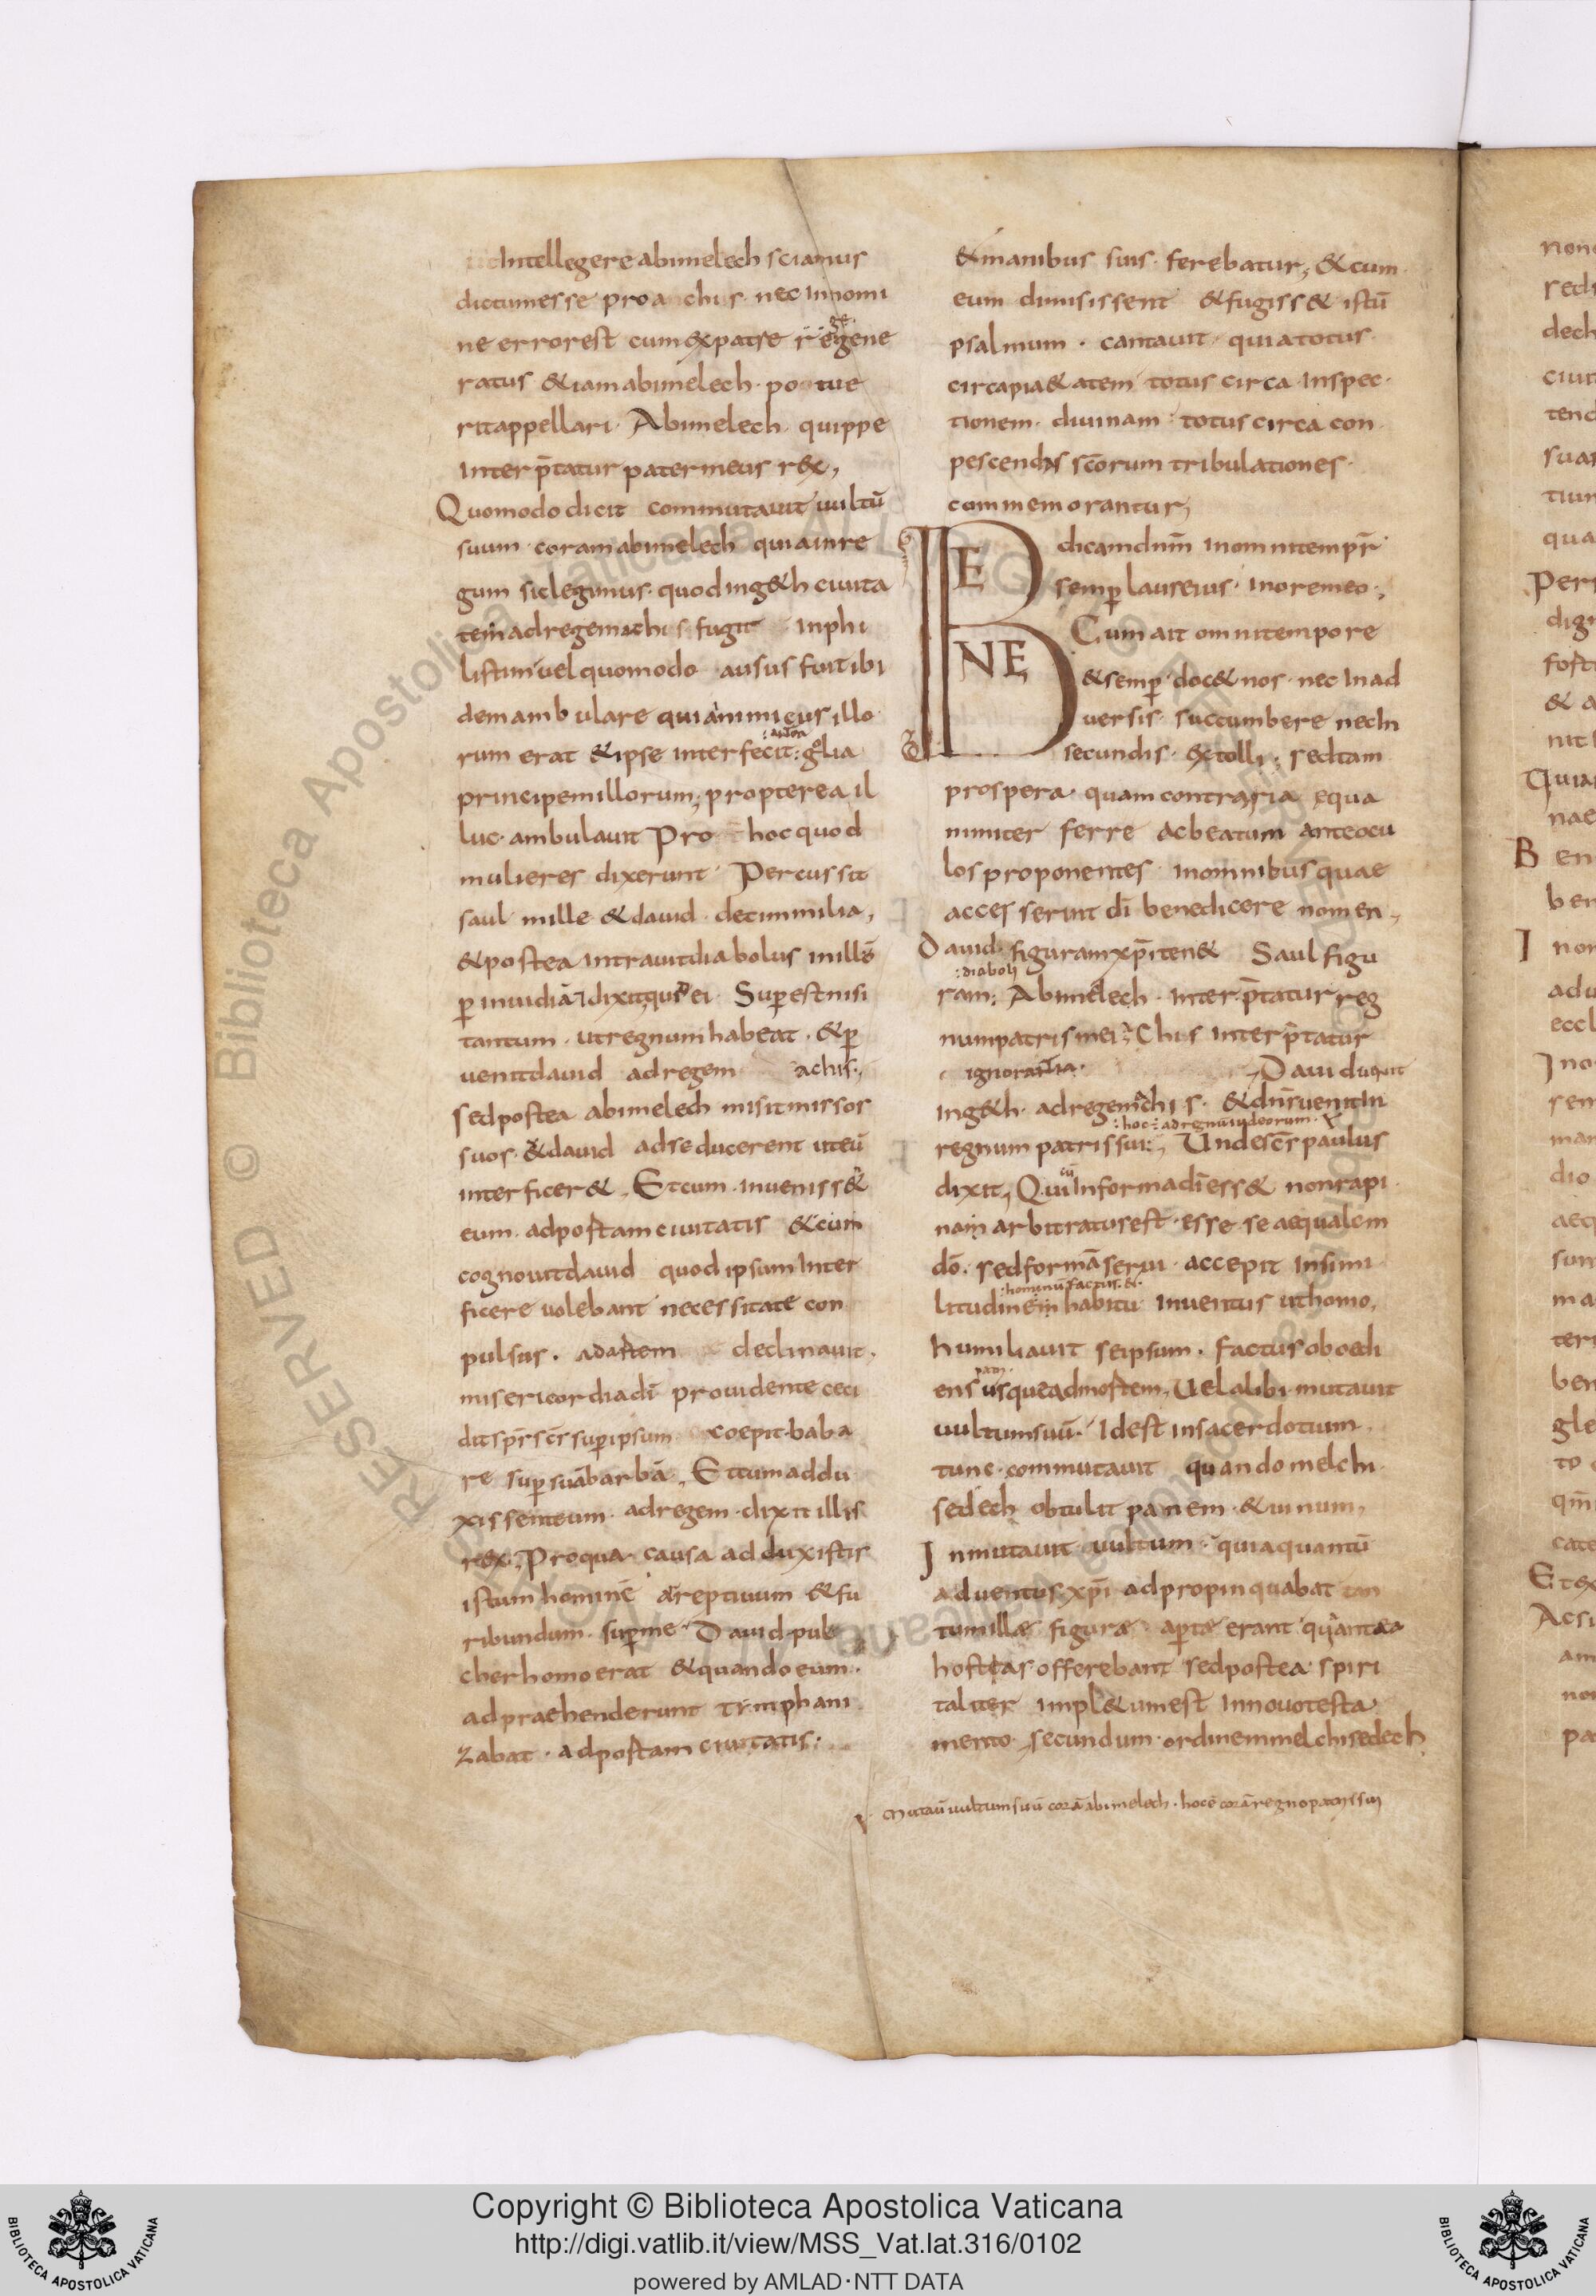 Intellegere abimelech sciamus
dictumesse pro a chis. nec innomi
ne errorest cum expatre regene
ratus &iam abimelech. po tue
ritappellari. Abimelech. quippe
interp̄tatur patermeus rex,
Quomodo dicit commutauit uultū
suum. coram abimelech quia inre
gum siclegimus. quod ing&h ciuita
tem adregem achis fugit inphi
listim uel quomodo ausus fuit ibi
demambulare quia inimicus illo
rum erat &ipse interfecit golia
principemillorum, propterea il
luc. ambulauit Pro hoc quod
mulieres dixerunt. Percussit
saul mille &dauid. decimmilia,
&postea intrauitdiabolus inillō
p inuidiā ei. Superestnisi
tantum. utregnumhabeat. &p
uenitdauid adregem achis.
sedpostea abimelech misitmissos
suos. &dauid adse ducerent uteū
interficer&. Etcum. inueniss&
eum. adportamciuitatis &cum
cognouitdauid quodipsuminter
ficere uolebant necessitate con
pulsus. adartem declinauit.
misericordiadī prouidente ceci
dit spr̄ scs̄ superipsum coepit. baba
re sup suābarbā. Ettumaddu
xissenteum. adregem. dixit illis
rex. Proqua causa adduxistis
istumhominē arreptiuum &fu
ribundum. superme. Dauid. pul
cherhomoerat &quandoeum.
adpraehenderunt timphani
zabat. adportam ciuitatis.
&manibus suis. ferebatur, &cum
eum dimisissent &fugiss& istū
psalmum. cantauit. quiatotus
circapia&atem totus circa inspec
tionem. diuinam totus circa con
pescendas scōrum tribulationes.
commemorantur,
BENE
dicamdnm̄ inomnitempr̄
semp lauseius. inoremeo.
Cum ait omnitempore
&semp doc&nos. nec Inad
uersis. succumbere necIn
secundis. extolli; sedtam
prospera. quam contraria equa
nimiter ferre acbeatum anteocu
losproponentes. inomnibusquae
accesserint dī benedicere nomen,
Dauid. figuramxpīten& Saul figu
:diaboli
ram: Abimelech. interp̄tatur reg
numpatrismei, Chis interp̄tatur
ignorantia. Dauid
ing&h. adregem achis. &dnr̄uenitIn
:hoc: adregnūiudeorum.
regnum patrissui:, Undescs̄ paulus
dixit, Qui Informadiess& nonrapi
nam arbitratusest. esse se aequalem
dō. sedformāserui. accepit Insimi
:hominū factus. &.
litudinem habitu inuentus uthomo,
humiliauit seipsum. factusoboedi
ens usqueadmortem, Uel alibi. mutauit
uultumsuū. Idest insacerdotium
tunc. commutauit quandomelchi
sedech obtulit panem. &uinum,
Inmutauit uultum. quiaquantū
aduentus. xpī adpropinquabat tan
tumillae figurae aptae erant quiantea
hostias offerebant sedpostea. spiri
taliter impl&umest Innouotesta
mento. secundum. ordinemmelchisedech
mutauūultumsuū corāabimelech. hocē corāregnopatrissui
non
redi
dech
ciuit
tend
suar
tiun
qua
Per
dign
forti
& a
nit
Quia
nae
B en
ben
I non
adu
eccl
Ino
rem
man
dio
aeq
sum
ma
teri
ben
gle
to
qm̄
cate
Etex
Acsi
am
non
pa
© Biblioteca Apostolica Vaticana
RESERVED
Copyright © Biblioteca Apostolica Vaticana
http://digi.vatlib.it/view/MSS_Vat.lat.316/0102
powered by AMLAD·NTT DATA
BIBLIOTECA APOSTOLICA VATICANA
BIBLIOTECA APOSTOLICA VATICANA